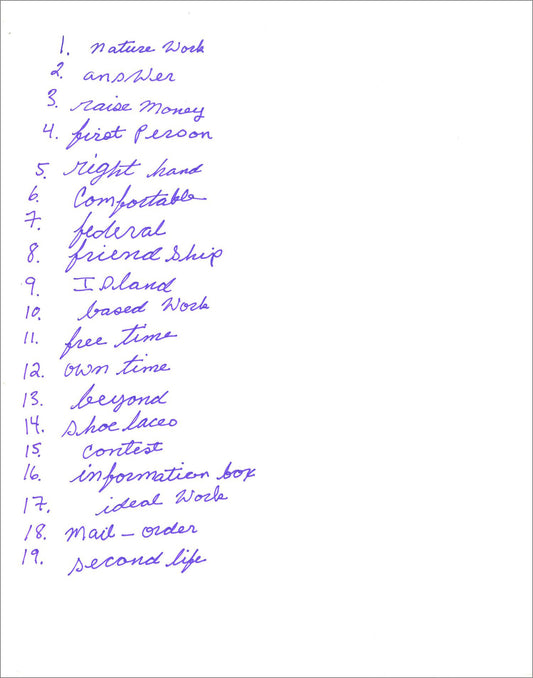 1. nature Work
2. answer
3. raise Money
4. first Person
5. right hand
6. Comfortable
7. federal
8. friend ship
9. Island
10. based Work
11. free time
12. own time
13. beyond
14. shoe laces
15. contest
16. information box
17. ideal Work
18. Mail - order
19. second life